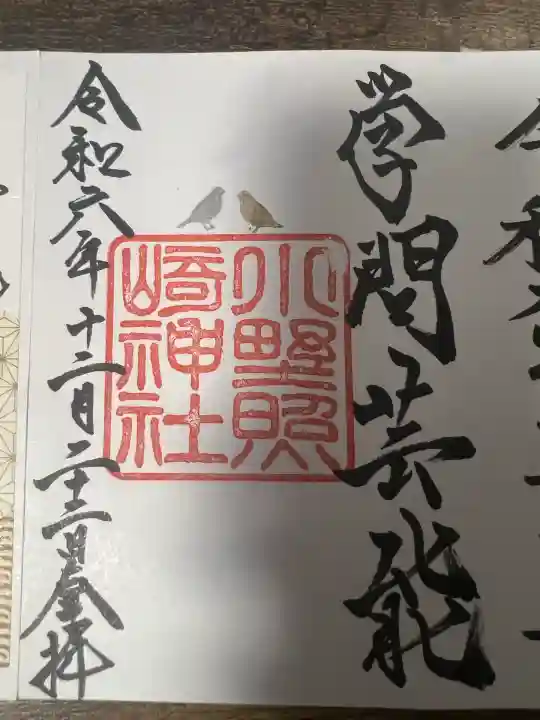 学問芸能
小野照
崎神社
令和六年十二月二十二日参拝